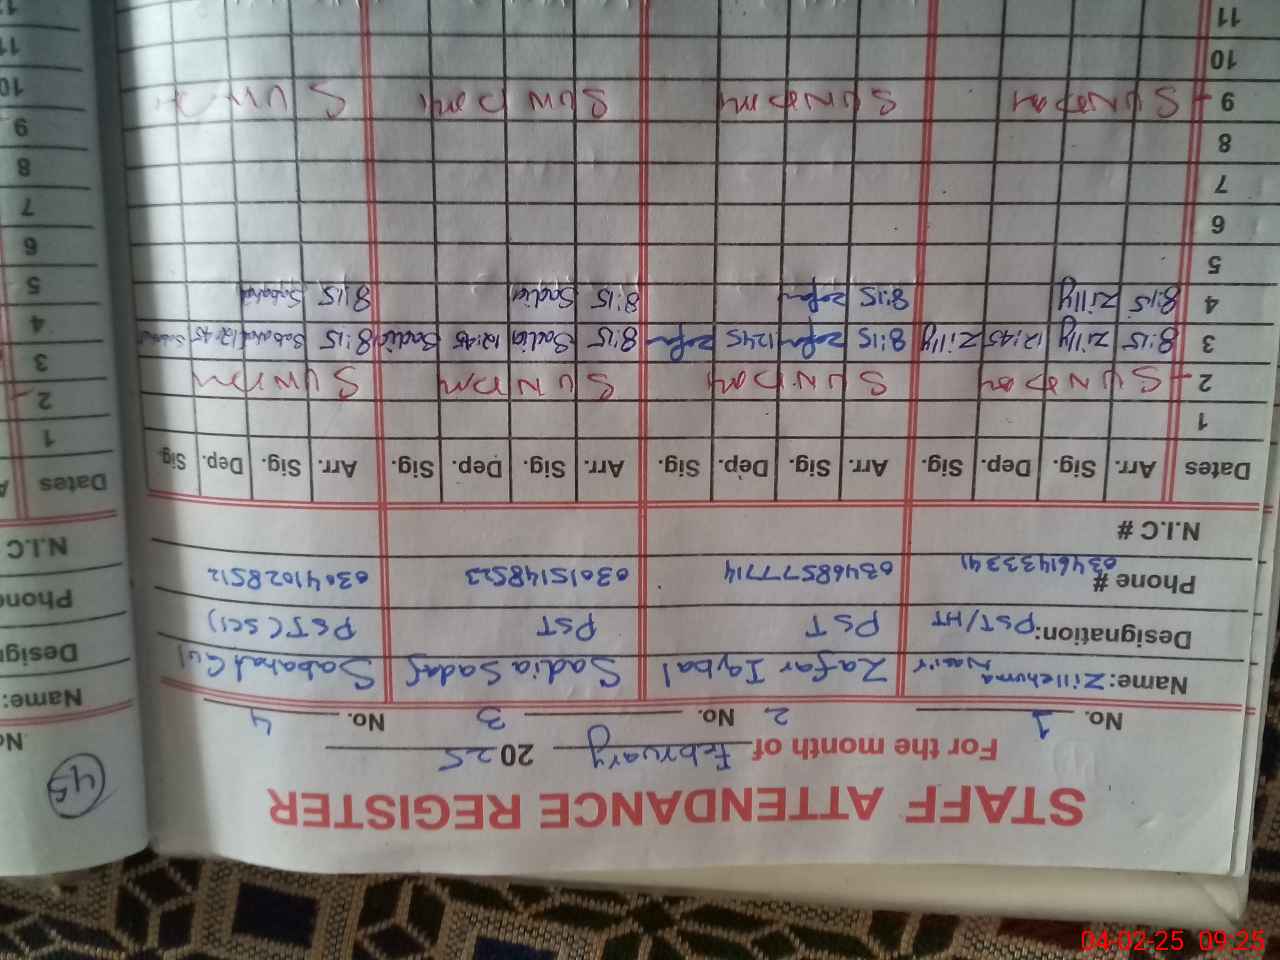 STAFF ATTENDANCE REGISTER
For the month of February 2025
No. 1 No. 2 No. 3 No. 4
Name: Zillehuma Nasir Zafar Iqbal Sadia Sadaf Sabahat Gul
Designation: PST/HT PST PST PST(SCI)
Phone # 03461433341 03468577714 03015148523 03041028512
N.I.C #
Dates Arr. Sig. Dep. Sig. Arr. Sig. Dep. Sig. Arr. Sig. Dep. Sig. Arr. Sig. Dep. Sig.
1
2 SUNDAY SUNDAY SUNDAY SUNDAY
3 8:15 Zilly 12:45 Zilly 8:15 Zafar 1245 Zafar 8:15 Sadia 12:45 Sadia 8:15 Sabahat 12:45 Sabahat
4 8:15 Zilly 8:15 Zafar 8:15 Sadia 8:15 Sabahat
5
6
7
8
9 SUNDAY SUNDAY SUNDAY SUN
10
11
45
No
Name:
Design
Phone
N.I.C
Dates A
1
2
3
4
5
6
7
8
9
10
11
12
04-02-25 09:25